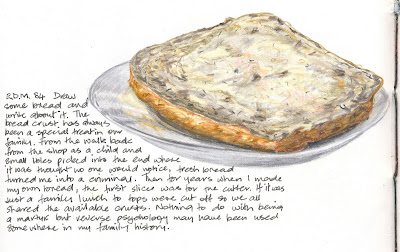 E.D.M. 84 Draw
some bread and
write about it. The
bread crust has always
been a special treat in our
family. From the walk back
from the shop as a child and
small holes picked into the end where
it was thought no one would notice, fresh bread
turned me into a criminal. Then for years when I made
my own bread, the first slice was for the cutter. If it was
just a family lunch to tops were cut off so we all
shared the available crusts. Nothing to do with being
a martyr but reverse psychology may have been used
somewhere in my family history.